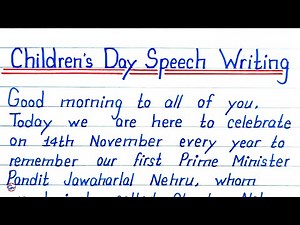 Children's Day Speech Writing
Good morning to all of you.
Today we are here to celebrate
on 14th November every year to
remember our first Prime Minister
Pandit Jawaharlal Nehru, whom